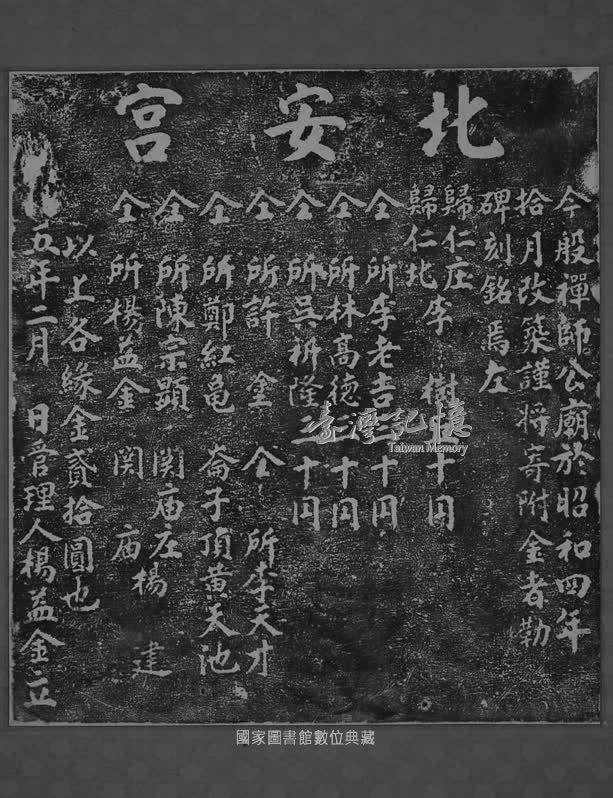 北安宮
今般禪師公廟於昭和四年
拾月改築謹将寄附金者勒
碑刻銘焉左
歸仁庄
歸仁北 李 樹 十円
仝 所李老吉 十円
仝 所林高德 十円
仝 所吳 隆二十円
仝 所許 塗 仝 所李天才
仝 所鄭紅 崙子頂黄天池
仝 所陳宗顕 関庙庄楊 建
仝 所楊益金 関 庙
以上各緣金貳拾圓也
五年二月 日管理人楊益金立
臺灣記憶
Taiwan Memory
國家圖書館數位典藏